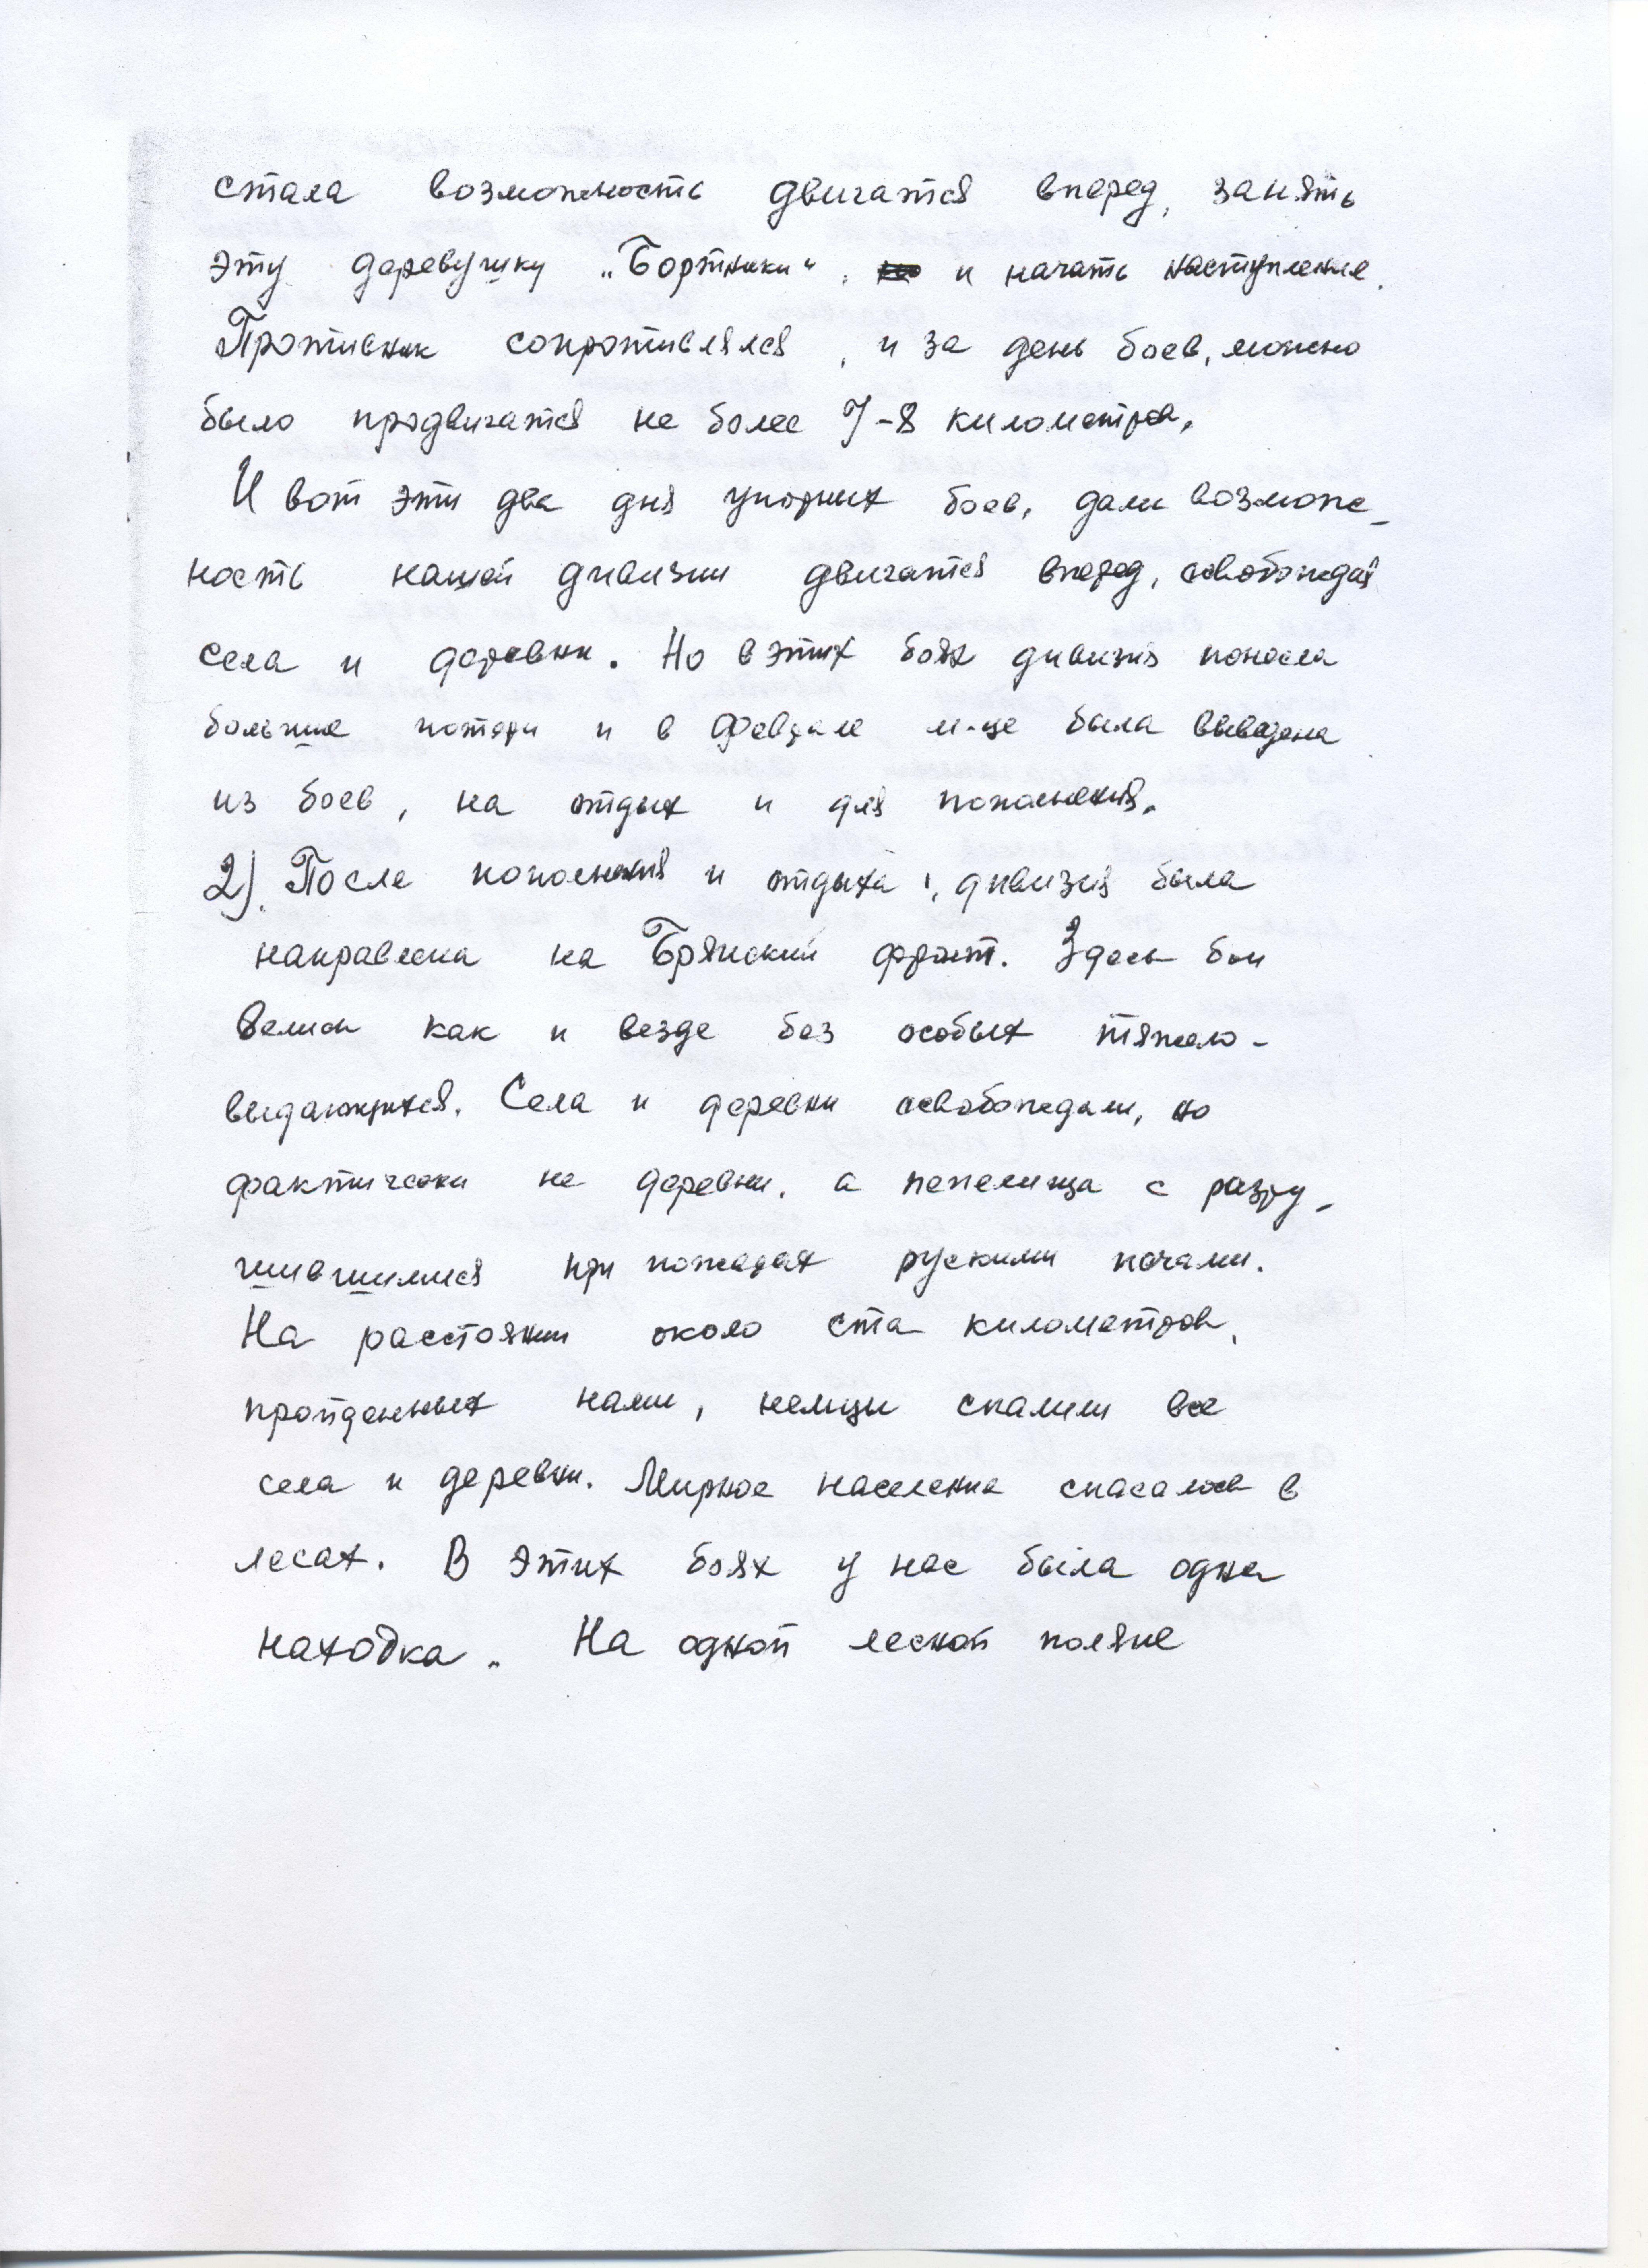 стала возможность двигатся вперед, занять
эту деревушку „Бортники“, и начать наступление.
Противник сопротивлялся, и за день боев, можно
было продвигатся не более 7-8 километров.
И вот эти два дня упорных боев, дали возмож-
ность нашей дивизии двигатся вперед, освобождая
села и деревни. Но в этих боях дивизия понесла
большие потери и в феврале м-це была выведена
из боев, на отдых и для пополнения.
2). После пополнения и отдыха, дивизия была
направлена на Брянский фронт. Здесь бои
велись как и везде без особых тяжело-
выдающихся. Села и деревни освобождали, но
фактически не деревни, а пепелища с разру-
шившимися при пожарах рускими печами.
На расстоянии около ста километров,
пройденных нами, немцы спалили все
села и деревни. Мирное население спасалось в
лесах. В этих боях у нас была одна
находка. На одной лесной поляне